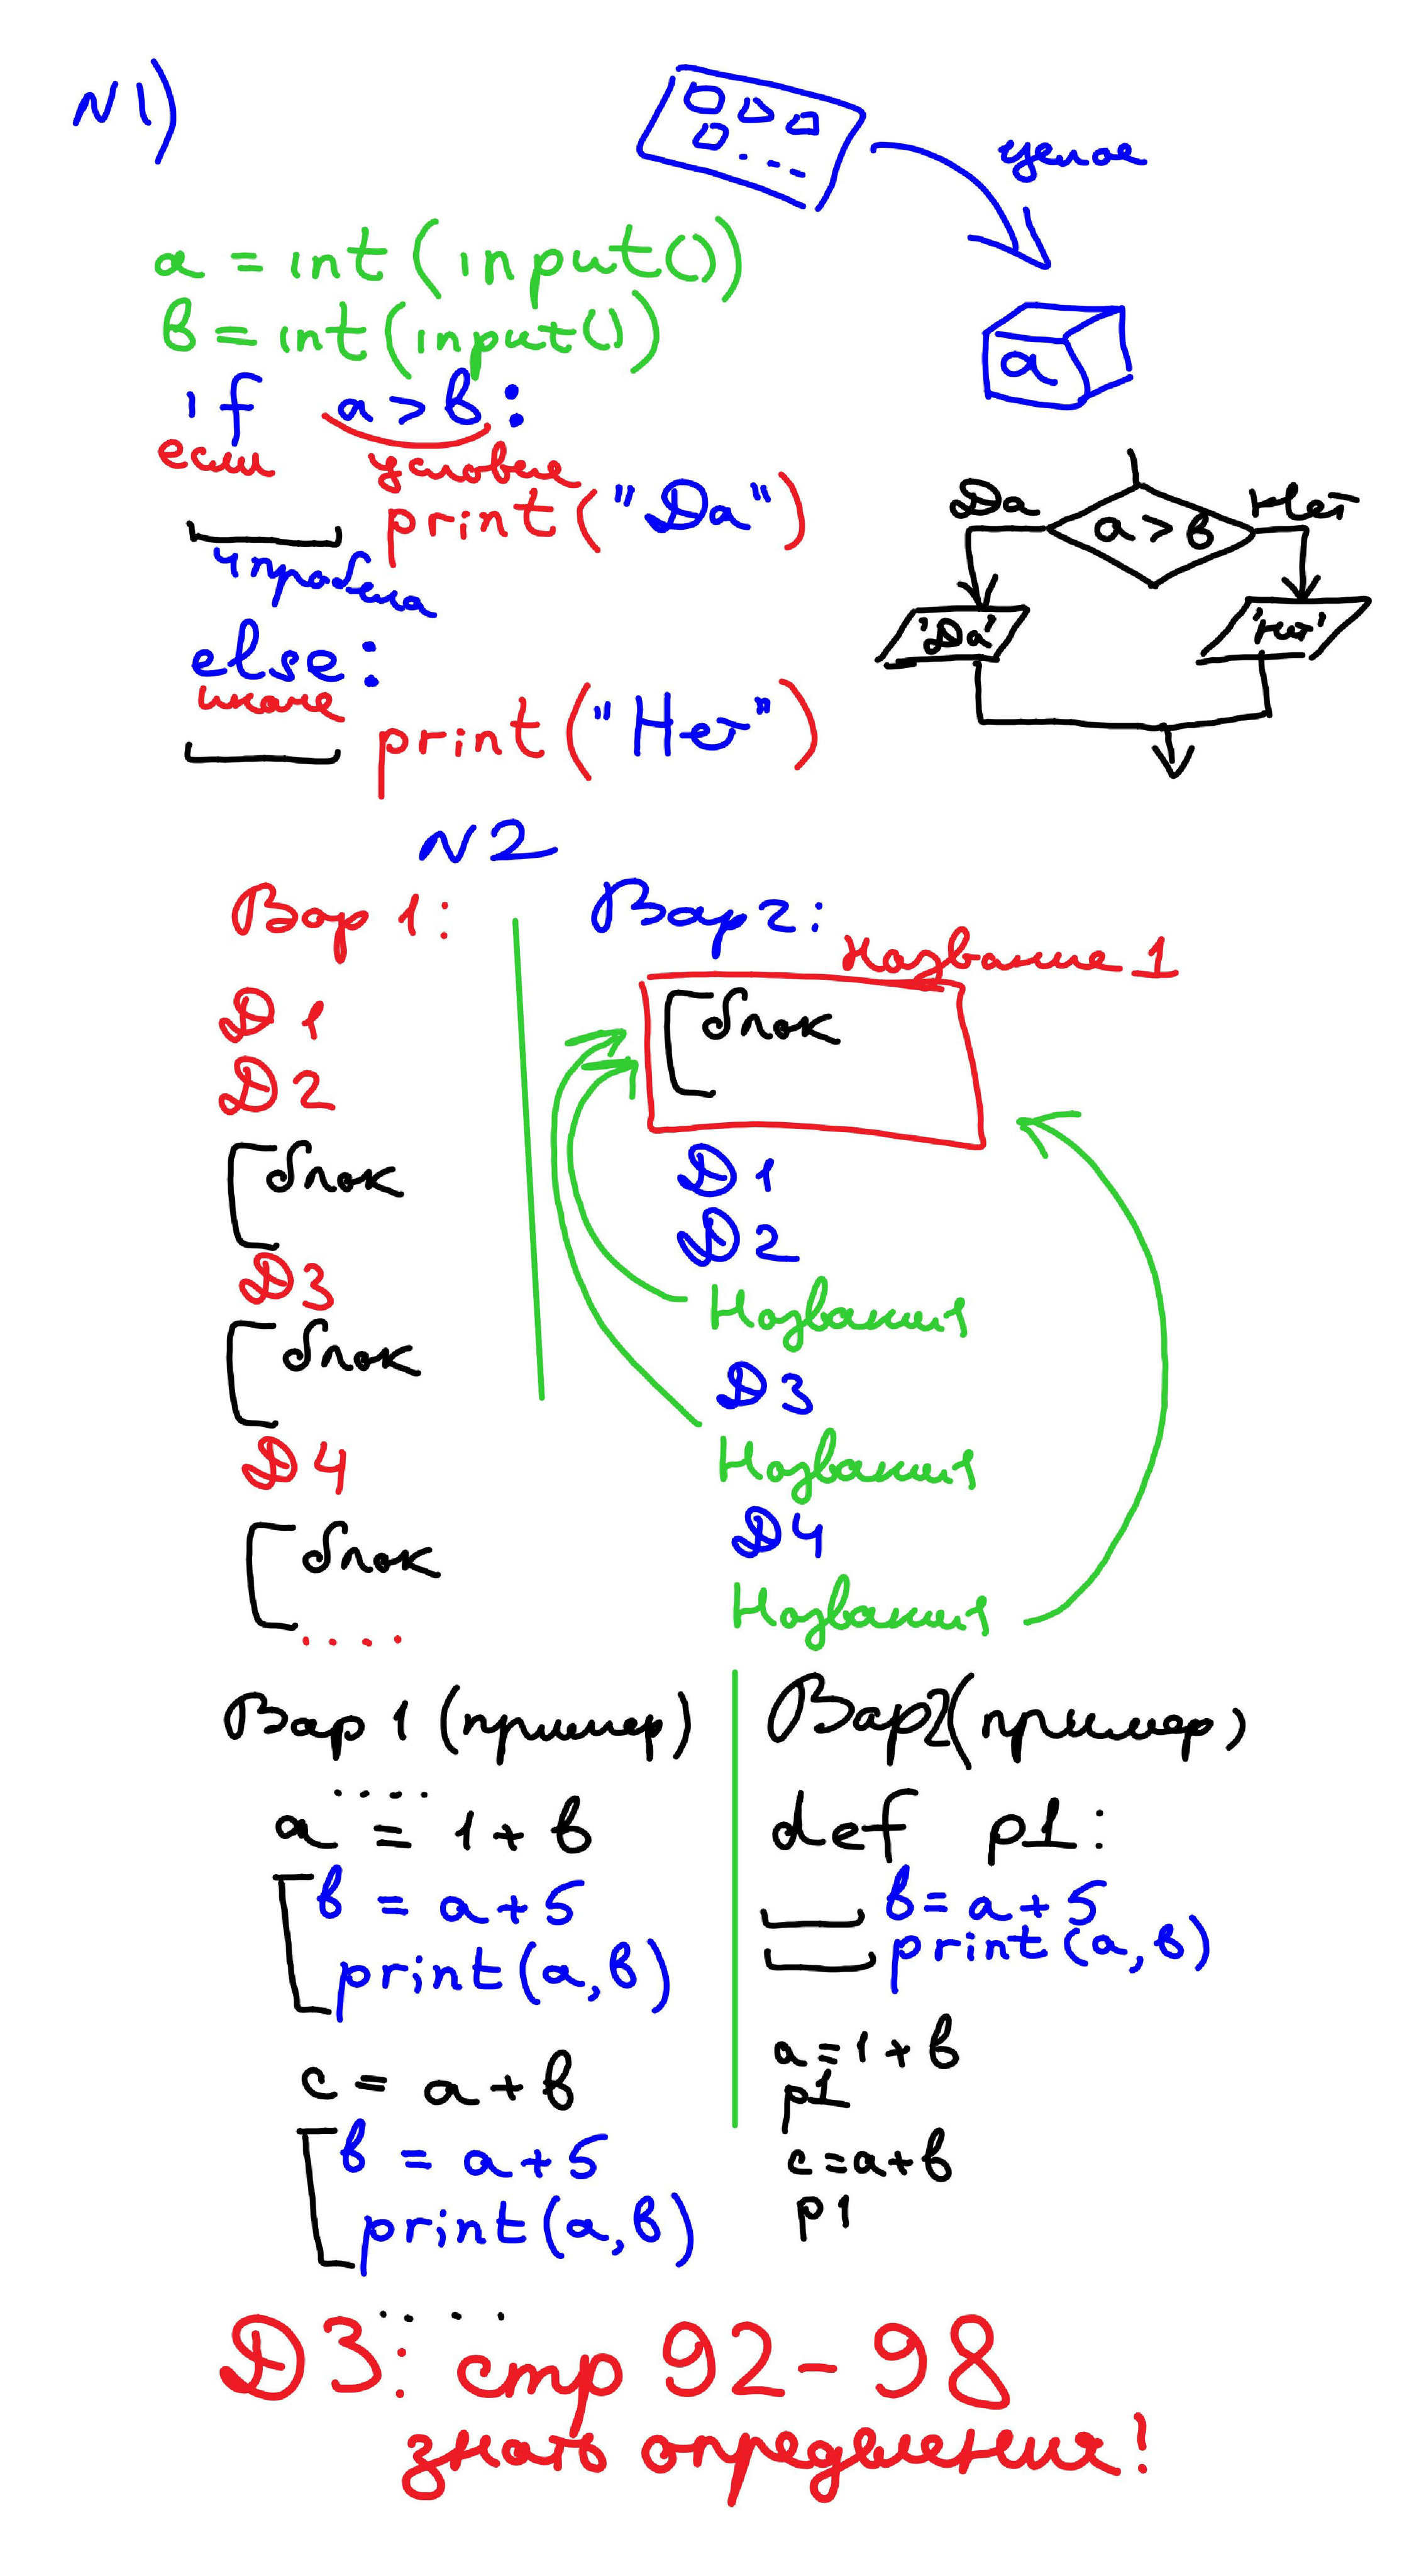 N1)
целое
a = int(input())
в = int(input())
a
if a > в :
если условие
print("Да")
4 пробела
Да a > в Нет
'Да' 'нет'
else:
иначе
print("Нет")
N2
Вар 1:
Д1
Д2
блок
Д3
блок
Д4
блок
....
Вар 2:
Название 1
блок
Д1
Д2
Названия1
Д3
Названия1
Д4
Названия1
Вар 1 (пример)
....
a = 1 + в
в = a + 5
print(a, в)
c = a + в
в = a + 5
print(a, в)
....
Вар2(пример)
def p1:
в = a + 5
print(a, в)
a = 1 + в
p1
c = a + в
p1
ДЗ: стр 92 - 98
знать определения!